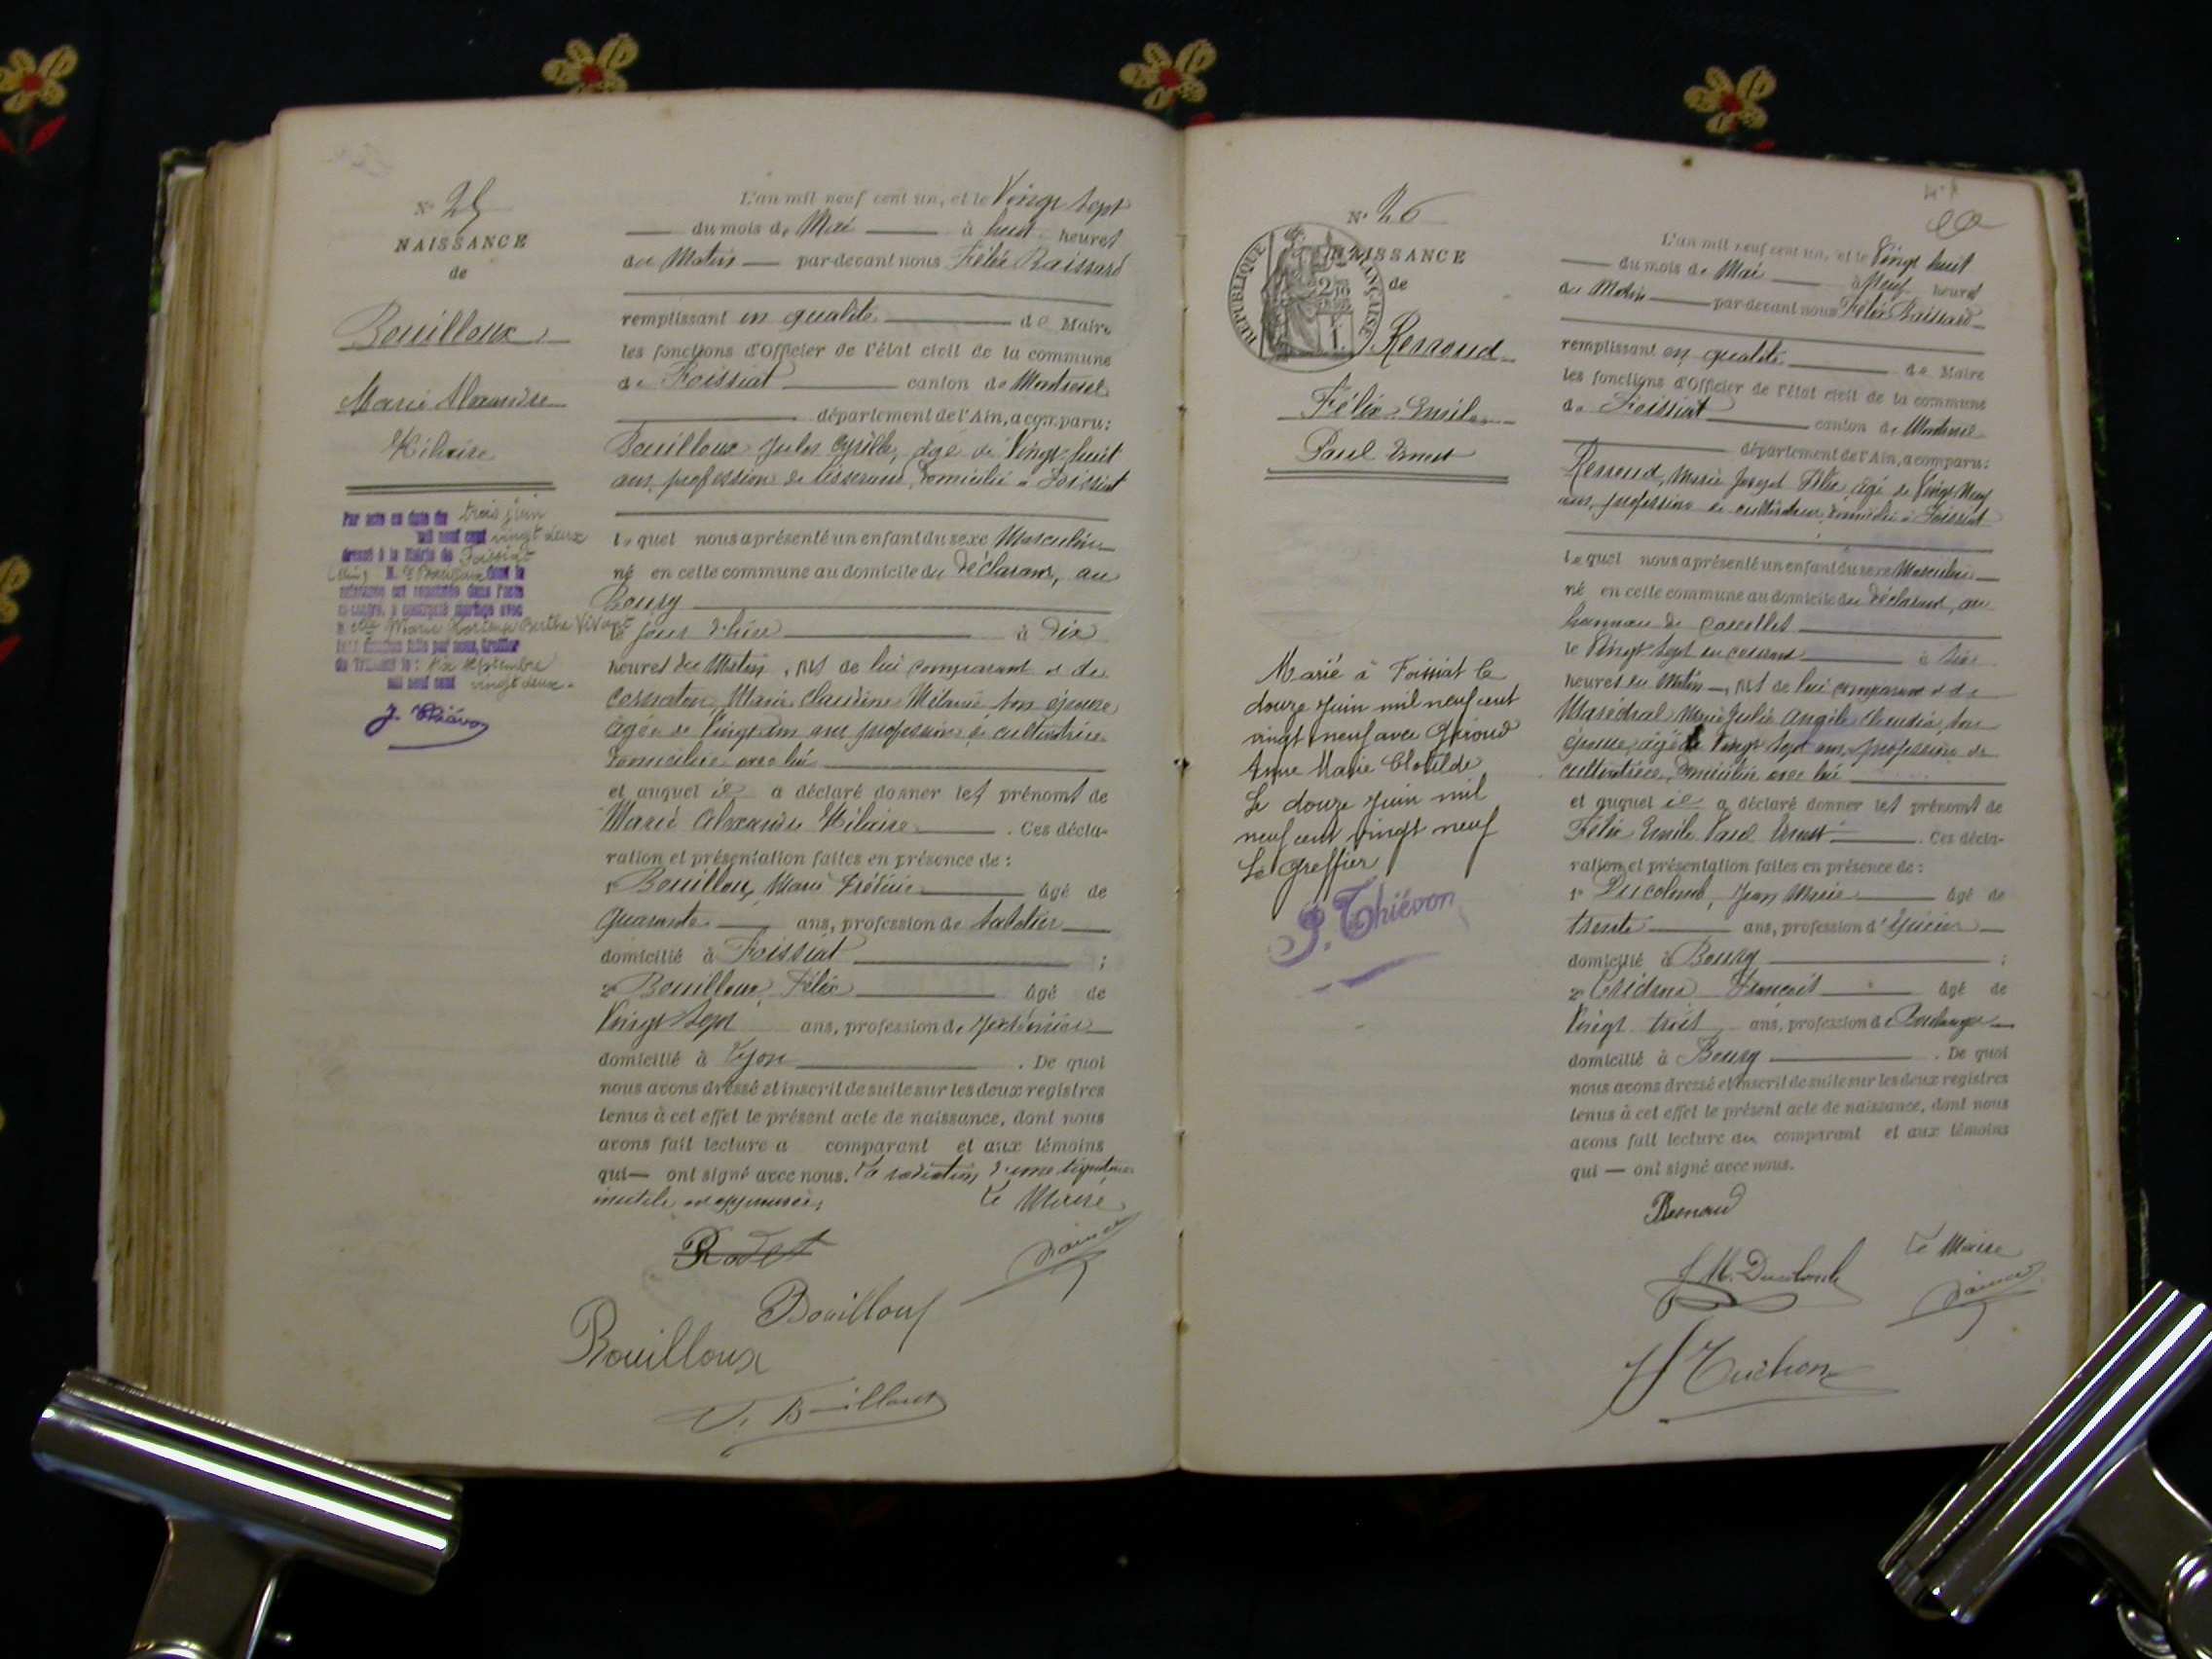 N° 25
NAISSANCE
de
Bouilloux
Marie Alexandre
Hilaire
Par acte en date du trois juin
mil neuf cent vingt deux
dressé à la Mairie de Foissiat
(Ain) M. Bouilloux dont la
naissance est constatée dans l'acte
ci-contre, a contracté mariage avec
Marie Berthe Vivant
mention faite par nous, Greffier
du Tribunal le: septembre
mil neuf cent vingt deux.
J. Thiévon
L'an mil neuf cent un, et le Vingt sept
du mois de Mai à huit heures
du Matin par-devant nous Félix
remplissant en qualité de Maire
les fonctions d'Officier de l'état civil de la commune
de Foissiat canton de Montrevel
département de l'Ain, a comparu:
Bouilloux Jules Cyrille, âgé de Vingt huit
ans, profession de tisserand, domicilié à Foissiat
lequel nous a présenté un enfant du sexe Masculin
né en cette commune au domicile du déclarant, au
Bourg
le jour d'hier à Dix
heures du Matin, fils de lui comparant et de
Marie Claudine Mélanie son épouse
âgée de Vingt un ans profession de cultivatrice
domiciliée avec lui
et auquel il a déclaré donner les prénoms de
Marie Alexandre Hilaire. Ces décla-
ration et présentation faites en présence de:
1° Bouilloux, Marie âgé de
quarante ans, profession de sabotier
domicilié à Foissiat;
2° Bouilloux Félix âgé de
Vingt sept ans, profession de Jardinier
domicilié à Lyon. De quoi
nous avons dressé et inscrit de suite sur les deux registres
tenus à cet effet le présent acte de naissance, dont nous
avons fait lecture a comparant et aux témoins
qui — ont signé avec nous. La radiation d'une signature
inutile est approuvée.
Le Maire
Rodet
Bouilloux
Bouilloux
N° 26
REPUBLIQUE FRANÇAISE
NAISSANCE
de
Renoud
Félix Emile
Paul Ernest
Marié à Foissiat le
douze juin mil neuf cent
vingt neuf avec Giroud
Anne Marie Clotilde
Le douze juin mil
neuf cent vingt neuf
Le greffier
J. Thiévon
L'an mil neuf cent un, et le Vingt huit
du mois de Mai à Neuf heures
du Matin par-devant nous Félix
remplissant en qualité de Maire
les fonctions d'Officier de l'état civil de la commune
de Foissiat canton de Montrevel
département de l'Ain, a comparu:
Renoud, Marie Joseph Félix âgé de Vingt Neuf
ans, profession de cultivateur, domicilié à Foissiat
lequel nous a présenté un enfant du sexe Masculin
né en cette commune au domicile du déclarant, au
hameau de
le Vingt sept du courant à
heures du Matin, fils de lui comparant et de
Maréchal Marie Julie Angèle Claudia, son
épouse, âgée de Vingt sept ans, profession de
cultivatrice, domiciliée avec lui
et auquel il a déclaré donner les prénoms de
Félix Emile Paul Ernest. Ces décla-
ration et présentation faites en présence de:
1° Ducolomb, Jean Marie âgé de
trente ans, profession d'Epicier
domicilié à Bourg;
2° âgé de
Vingt trois ans, profession de Boulanger
domicilié à Bourg. De quoi
nous avons dressé et inscrit de suite sur les deux registres
tenus à cet effet le présent acte de naissance, dont nous
avons fait lecture au comparant et aux témoins
qui — ont signé avec nous.
Renoud
J. M. Ducolomb
Le Maire